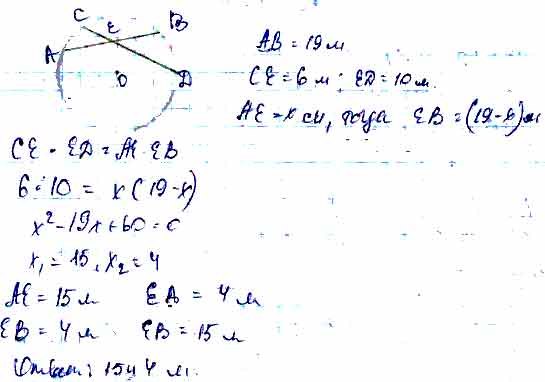 C E B
A
O D
AB = 19 м
CE = 6 м ED = 10 м.
AE = x см, тогда EB = (19-x) м
CE · ED = AE · EB
6 · 10 = x (19-x)
x² - 19x + 60 = 0
x₁ = 15, x₂ = 4
AE = 15 м EA = 4 м
EB = 4 м EB = 15 м
Ответ: 15 и 4 м.